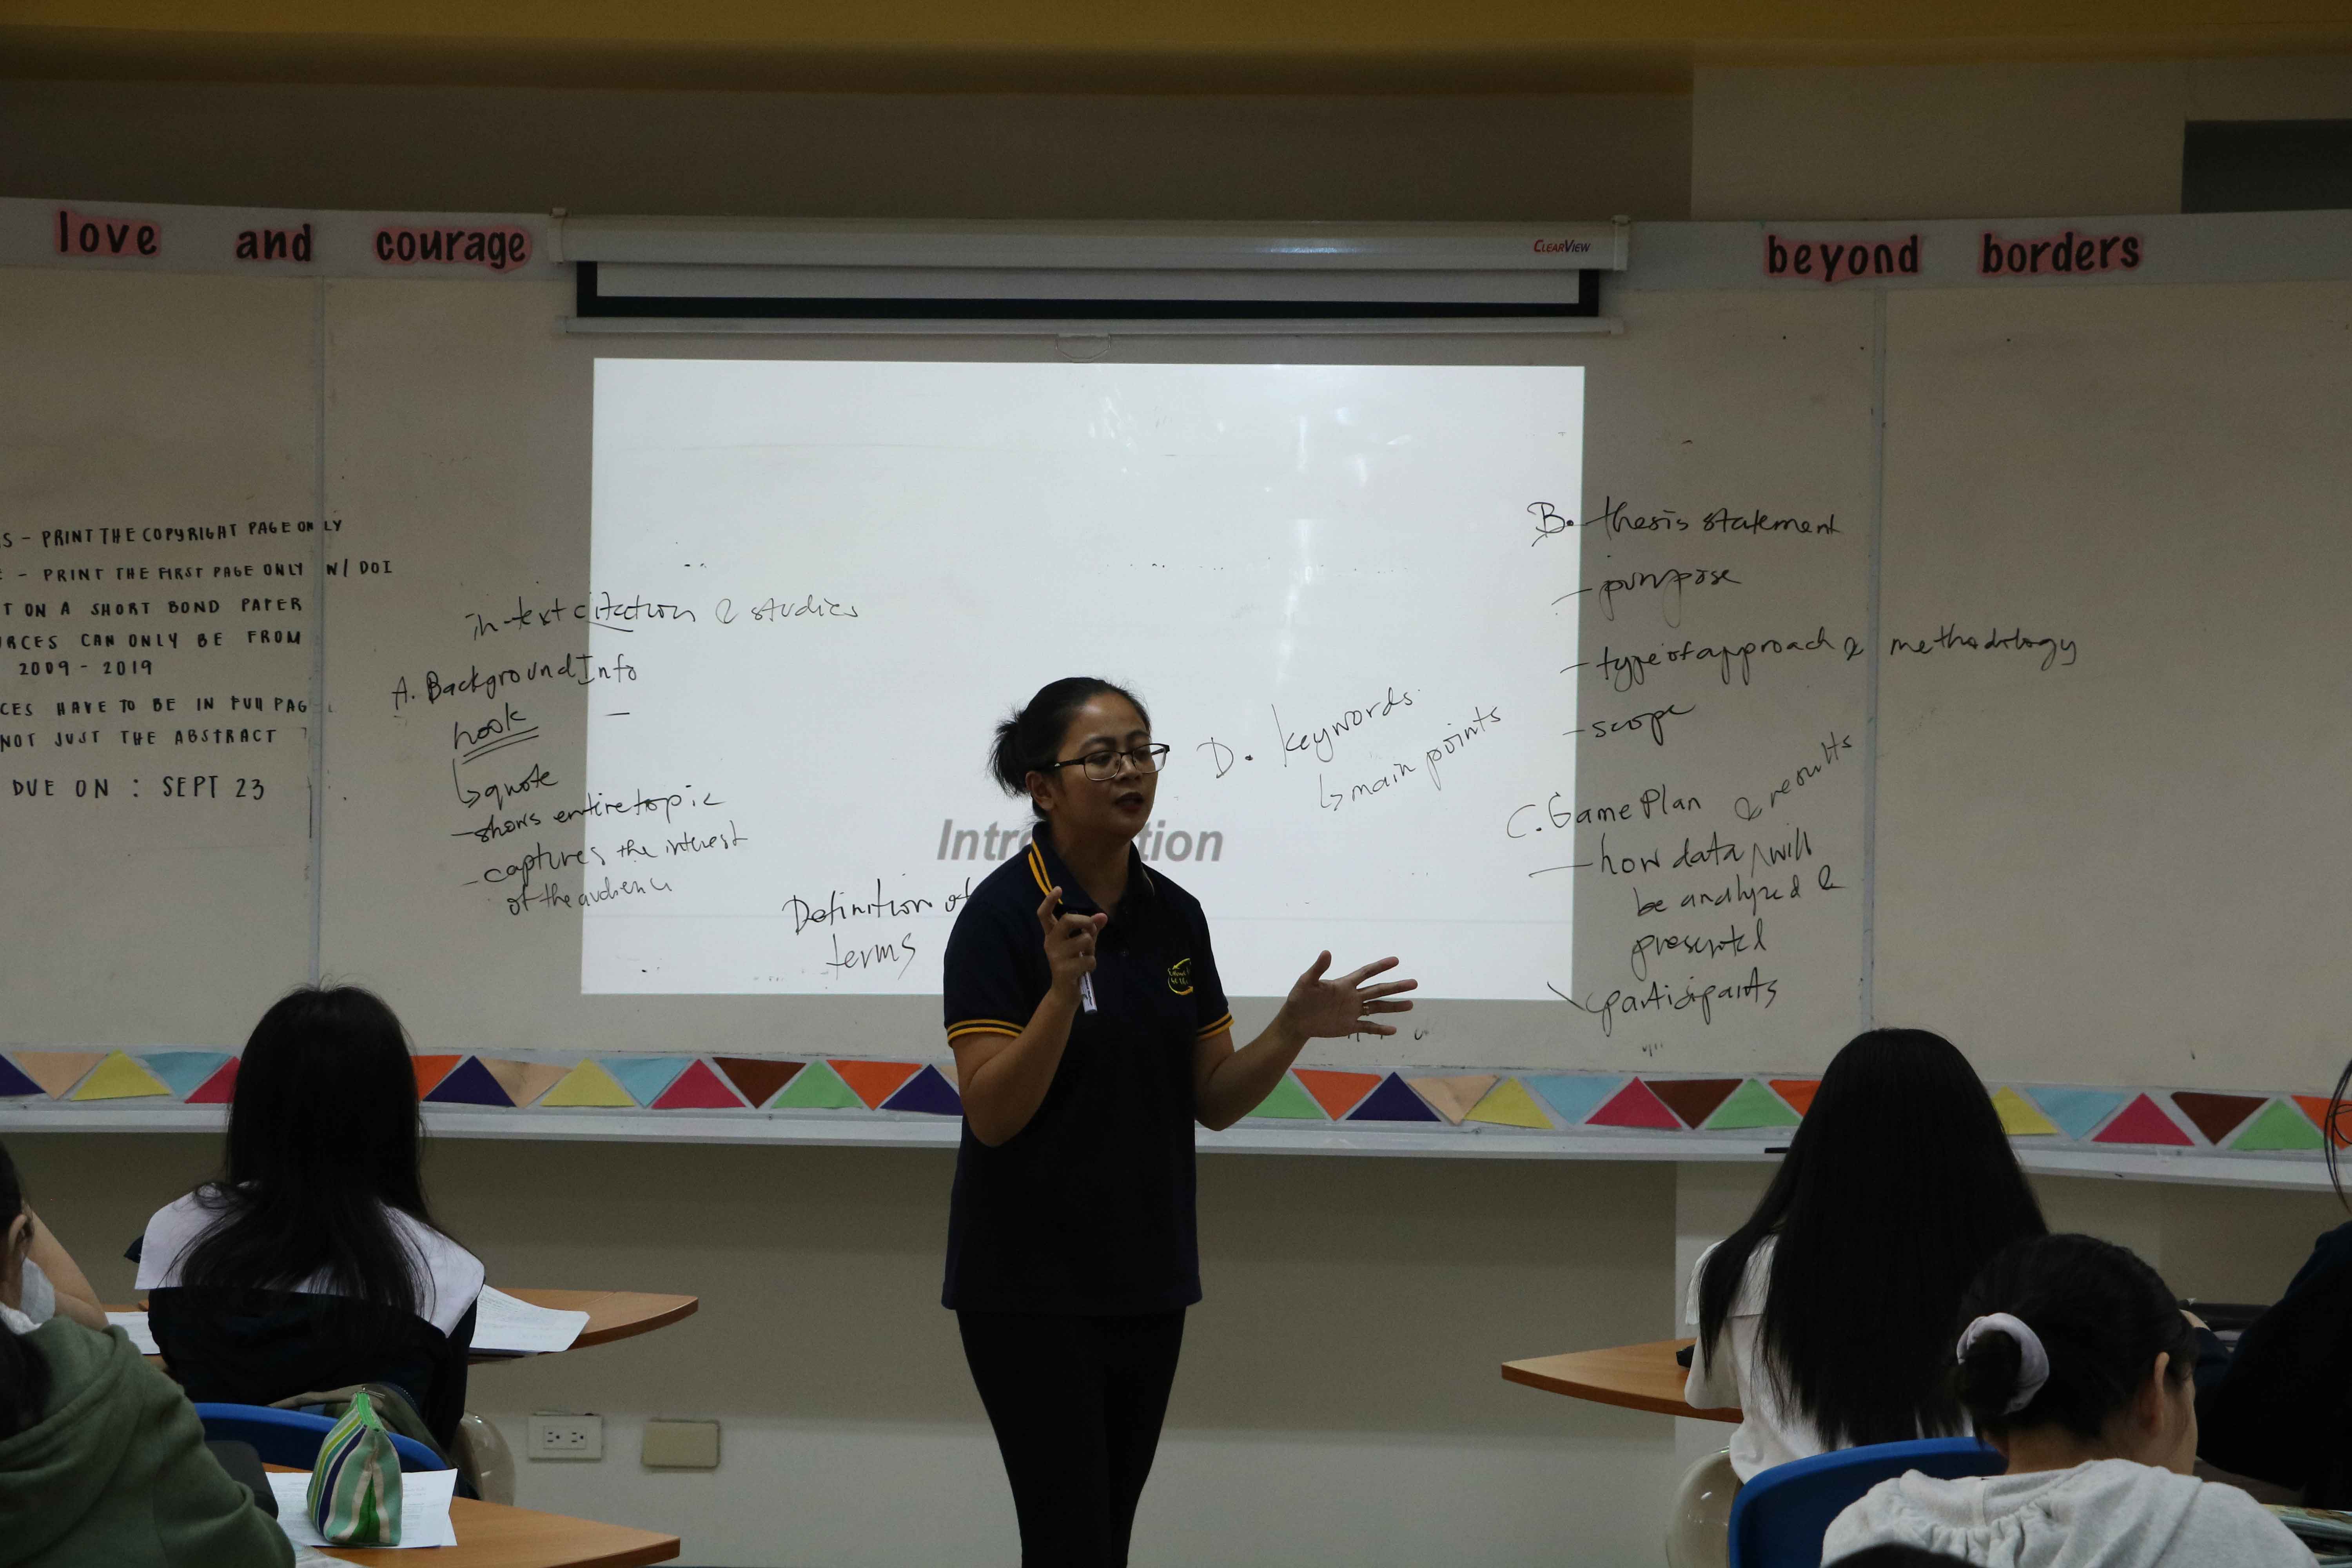 love and courage
beyond borders
CLEARVIEW
S - PRINT THE COPYRIGHT PAGE ONLY
- PRINT THE FIRST PAGE ONLY W/ DOI
T ON A SHORT BOND PAPER
RCES CAN ONLY BE FROM
2009 - 2019
CES HAVE TO BE IN FULL PAG
NOT JUST THE ABSTRACT
DUE ON : SEPT 23
in-text citation & studies
A. Background Info
hook
↳ quote
- shows entire topic
- captures the interest
of the audience
Intro tion
Definition of
terms
D. keywords
↳ main points
B. thesis statement
- purpose
- type of approach & methodology
- scope
C. Game Plan
& results
- how data ^ will
be analyzed &
presented
participants